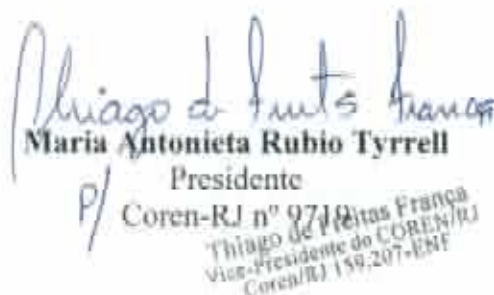 Thiago d Freitas França
Maria Antonieta Rubio Tyrrell
Presidente
P/
Coren-RJ nº 9719
Thiago de Freitas França
Vice-Presidente do COREN/RJ
Coren/RJ 159.207-ENF